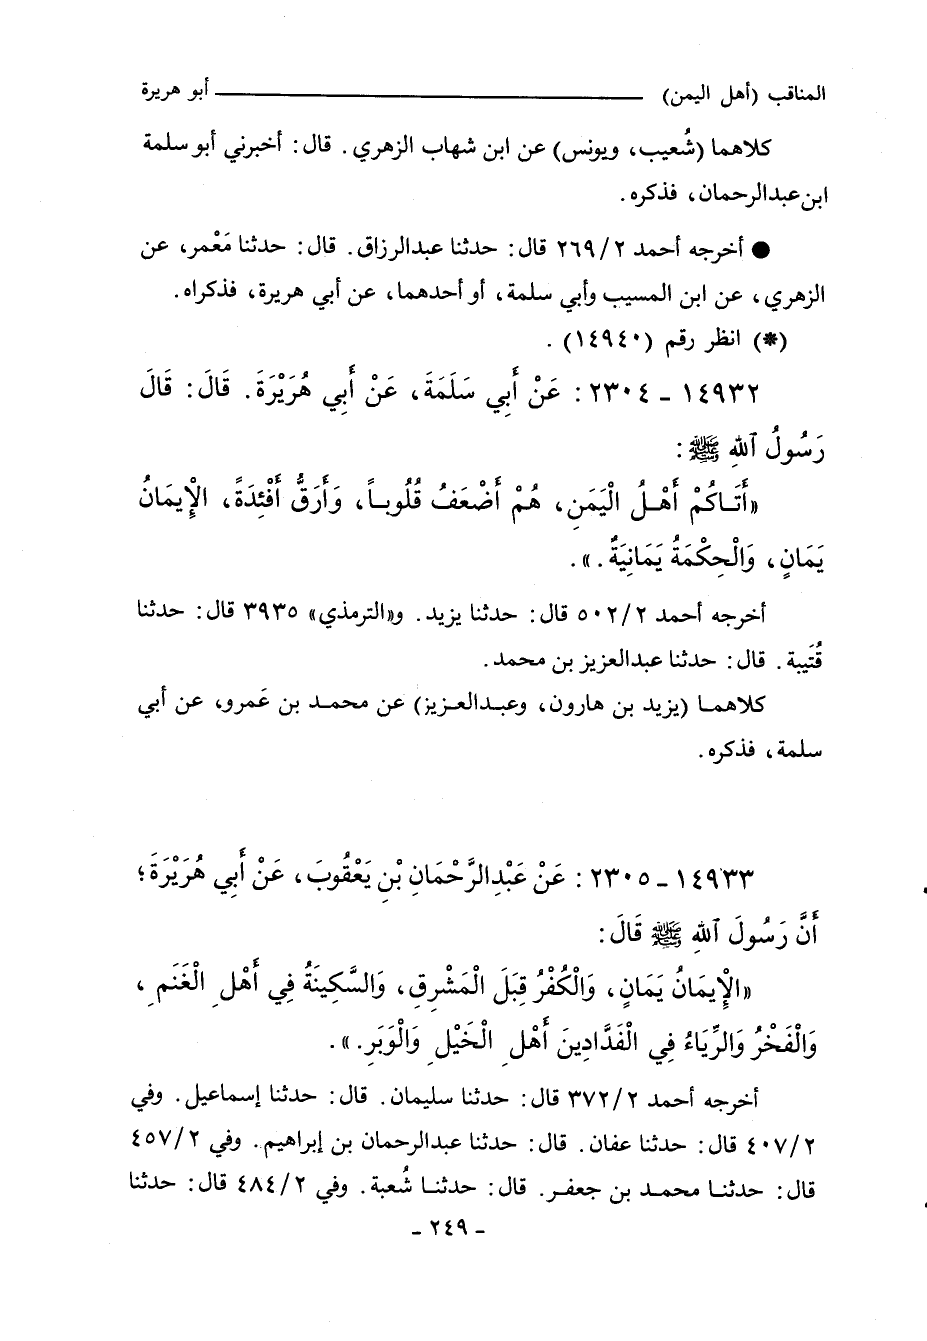 المناقب (أهل اليمن) ـــــــــــــــــــــ أبو هريرة
كلاهما (شُعيب، ويونس) عن ابن شهاب الزهري. قال: أخبرني أبو سلمة
ابن عبدالرحمان، فذكره.
● أخرجه أحمد ٢/٢٦٩ قال: حدثنا عبدالرزاق. قال: حدثنا مَعْمر، عن
الزهري، عن ابن المسيب وأبي سلمة، أو أحدهما، عن أبي هريرة، فذكراه.
(*) انظر رقم (١٤٩٤٠).
١٤٩٣٢ - ٢٣٠٤: عَنْ أَبِي سَلَمَةَ، عَنْ أَبِي هُرَيْرَةَ. قَالَ: قَالَ
رَسُولُ ٱللهِ ﷺ:
«أَتَاكُمْ أَهْلُ الْيَمَنِ، هُمْ أَضْعَفُ قُلُوباً، وَأَرَقُّ أَفْئِدَةً، الْإِيمَانُ
يَمَانٍ، وَالْحِكْمَةُ يَمَانِيَةٌ.».
أخرجه أحمد ٢/٥٠٢ قال: حدثنا يزيد. و«الترمذي» ٣٩٣٥ قال: حدثنا
قُتَيبة. قال: حدثنا عبدالعزيز بن محمد.
كلاهما (يزيد بن هارون، وعبدالعزيز) عن محمد بن عَمرو، عن أبي
سلمة، فذكره.
١٤٩٣٣ - ٢٣٠٥: عَنْ عَبْدِالرَّحْمَانِ بْنِ يَعْقُوبَ، عَنْ أَبِي هُرَيْرَةَ؛
أَنَّ رَسُولَ ٱللهِ ﷺ قَالَ:
«الْإِيمَانُ يَمَانٍ، وَالْكُفْرُ قِبَلَ الْمَشْرِقِ، وَالسَّكِينَةُ فِي أَهْلِ الْغَنَمِ،
وَالْفَخْرُ وَالرِّيَاءُ فِي الْفَدَّادِينَ أَهْلِ الْخَيْلِ وَالْوَبَرِ.».
أخرجه أحمد ٢/٣٧٢ قال: حدثنا سليمان. قال: حدثنا إسماعيل. وفي
٢/٤٠٧ قال: حدثنا عفان. قال: حدثنا عبدالرحمان بن إبراهيم. وفي ٢/٤٥٧
قال: حدثنا محمد بن جعفر. قال: حدثنا شُعبة. وفي ٢/٤٨٤ قال: حدثنا
- ٢٤٩ -